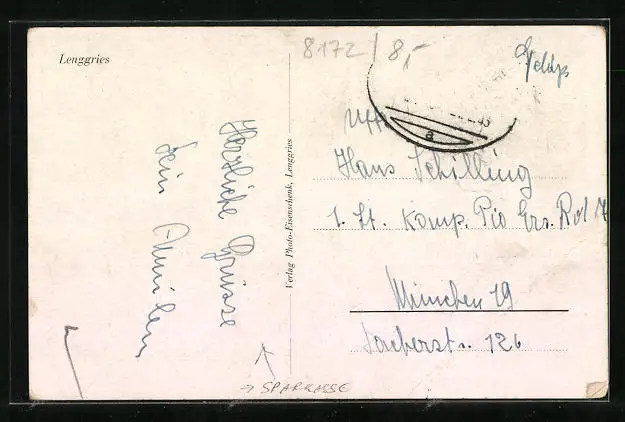 Lenggries
8172 / 8,-
Feldp
Herzliche Grüsse
Dein
Verlag Photo-Eisenschenk, Lenggries
Uffz
Hans Schilling
1. St. Komp. Pio Ers. Batl 7
München 19
126
a
→ SPARKASSE